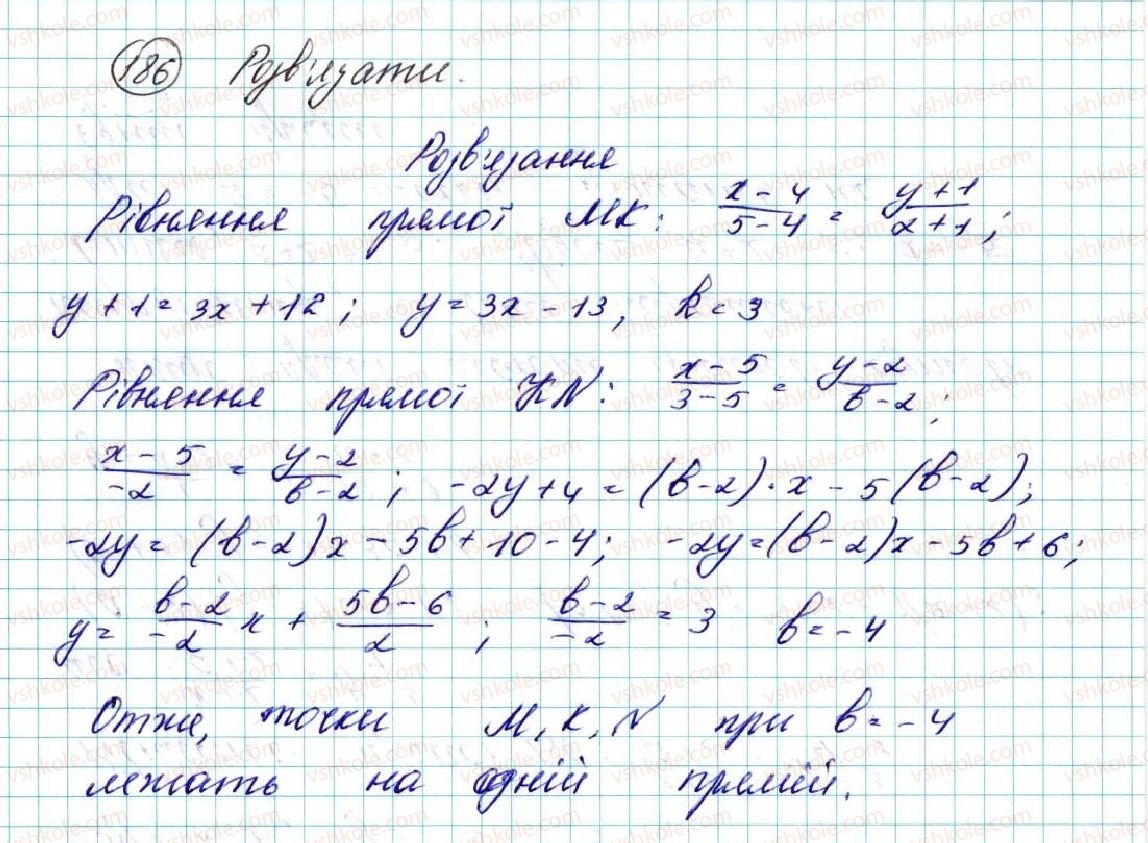 186 Розв'язати.
Розв'язання
Рівняння прямої МК: (x-4)/(5-4) = (y+1)/(2+1);
y+1=3x+12; y=3x-13, k=3
Рівняння прямої KN: (x-5)/(3-5) = (y-2)/(b-2);
(x-5)/(-2) = (y-2)/(b-2); -2y+4=(b-2)·x-5(b-2);
-2y=(b-2)x-5b+10-4; -2y=(b-2)x-5b+6;
y= (b-2)/(-2) x + (5b-6)/2; (b-2)/(-2) = 3 b=-4
Отже, точки М, К, N при b=-4
лежать на одній прямій.